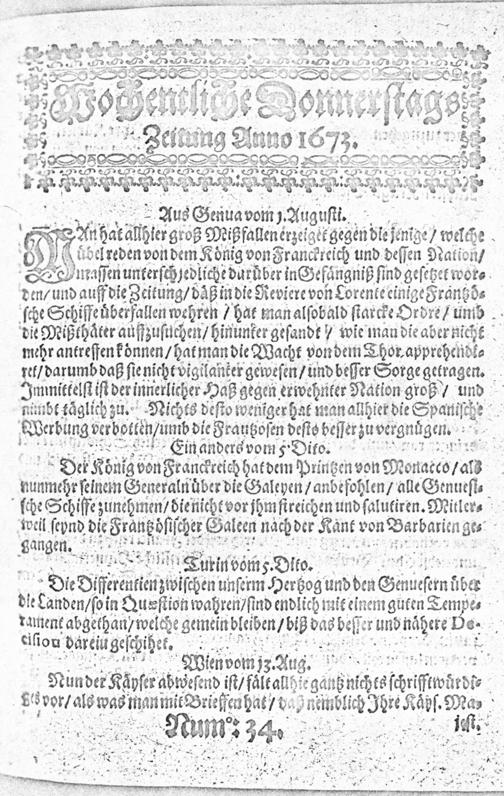 Wochentliche Donnerstags
Zeitung Anno 1673.
Aus Genua vom 1. Augusti.
MAn hat allhier groß Mißfallen erzeiget gegen die jenige / welche
übel reden von dem König von Franckreich und dessen Nation /
massen unterschjedliche darüber in Gefängniß sind gesetzet wor-
den / und auff die Zeitung / däß in die Reviere von Lorente einige Frantzö-
sche Schiffe überfallen wehren / hat man alsobald starcke Ordre / umb
die Mißthäter auffzusuchen / hinunker gesandt / wie man die aber nicht
mehr antreffen können / hat man die Wacht von dem Thor apprehendi-
ret / darumb daß sie nicht vigilanter gewesen / und besser Sorge getragen.
Immittelst ist der innerlicher Haß gegen erwehnter Nation groß / und
nimbt täglich zu. Nichts desto weniger hat man allhier die Spanische
Werbung verbotten / umb die Frantzosen desto besser zu vergnügen.
Ein anders vom 5 Dito.
Der König von Franckreich hat dem Printzen von Monacco / als
nunmehr seinem Generaln über die Galeyen / anbefohlen / alle Genuesi-
sche Schiffe zunehmen / die nicht vor jhm streichen und salutiren. Mitler-
weil seynd die Frantzösischer Galeen nach der Kant von Barbarien ge-
gangen.
Turin vom 5. Dito.
Die Differentien zwischen unserm Hertzog und den Genuesern über
die Landen / so in Quæstion wahren / sind endlich mit einem guten Tempe-
rament abgethan / welche gemein bleiben / biß das besser und nähere De-
cision darein geschihet.
Wien vom 13. Aug.
Nun der Käyser abwesend ist / fält allhie gantz nichts schrifftwürdi-
ges vor / als was man mit Brieffen hat / daß nemblich Ihre Käys. Ma-
Num°: 34. jest.